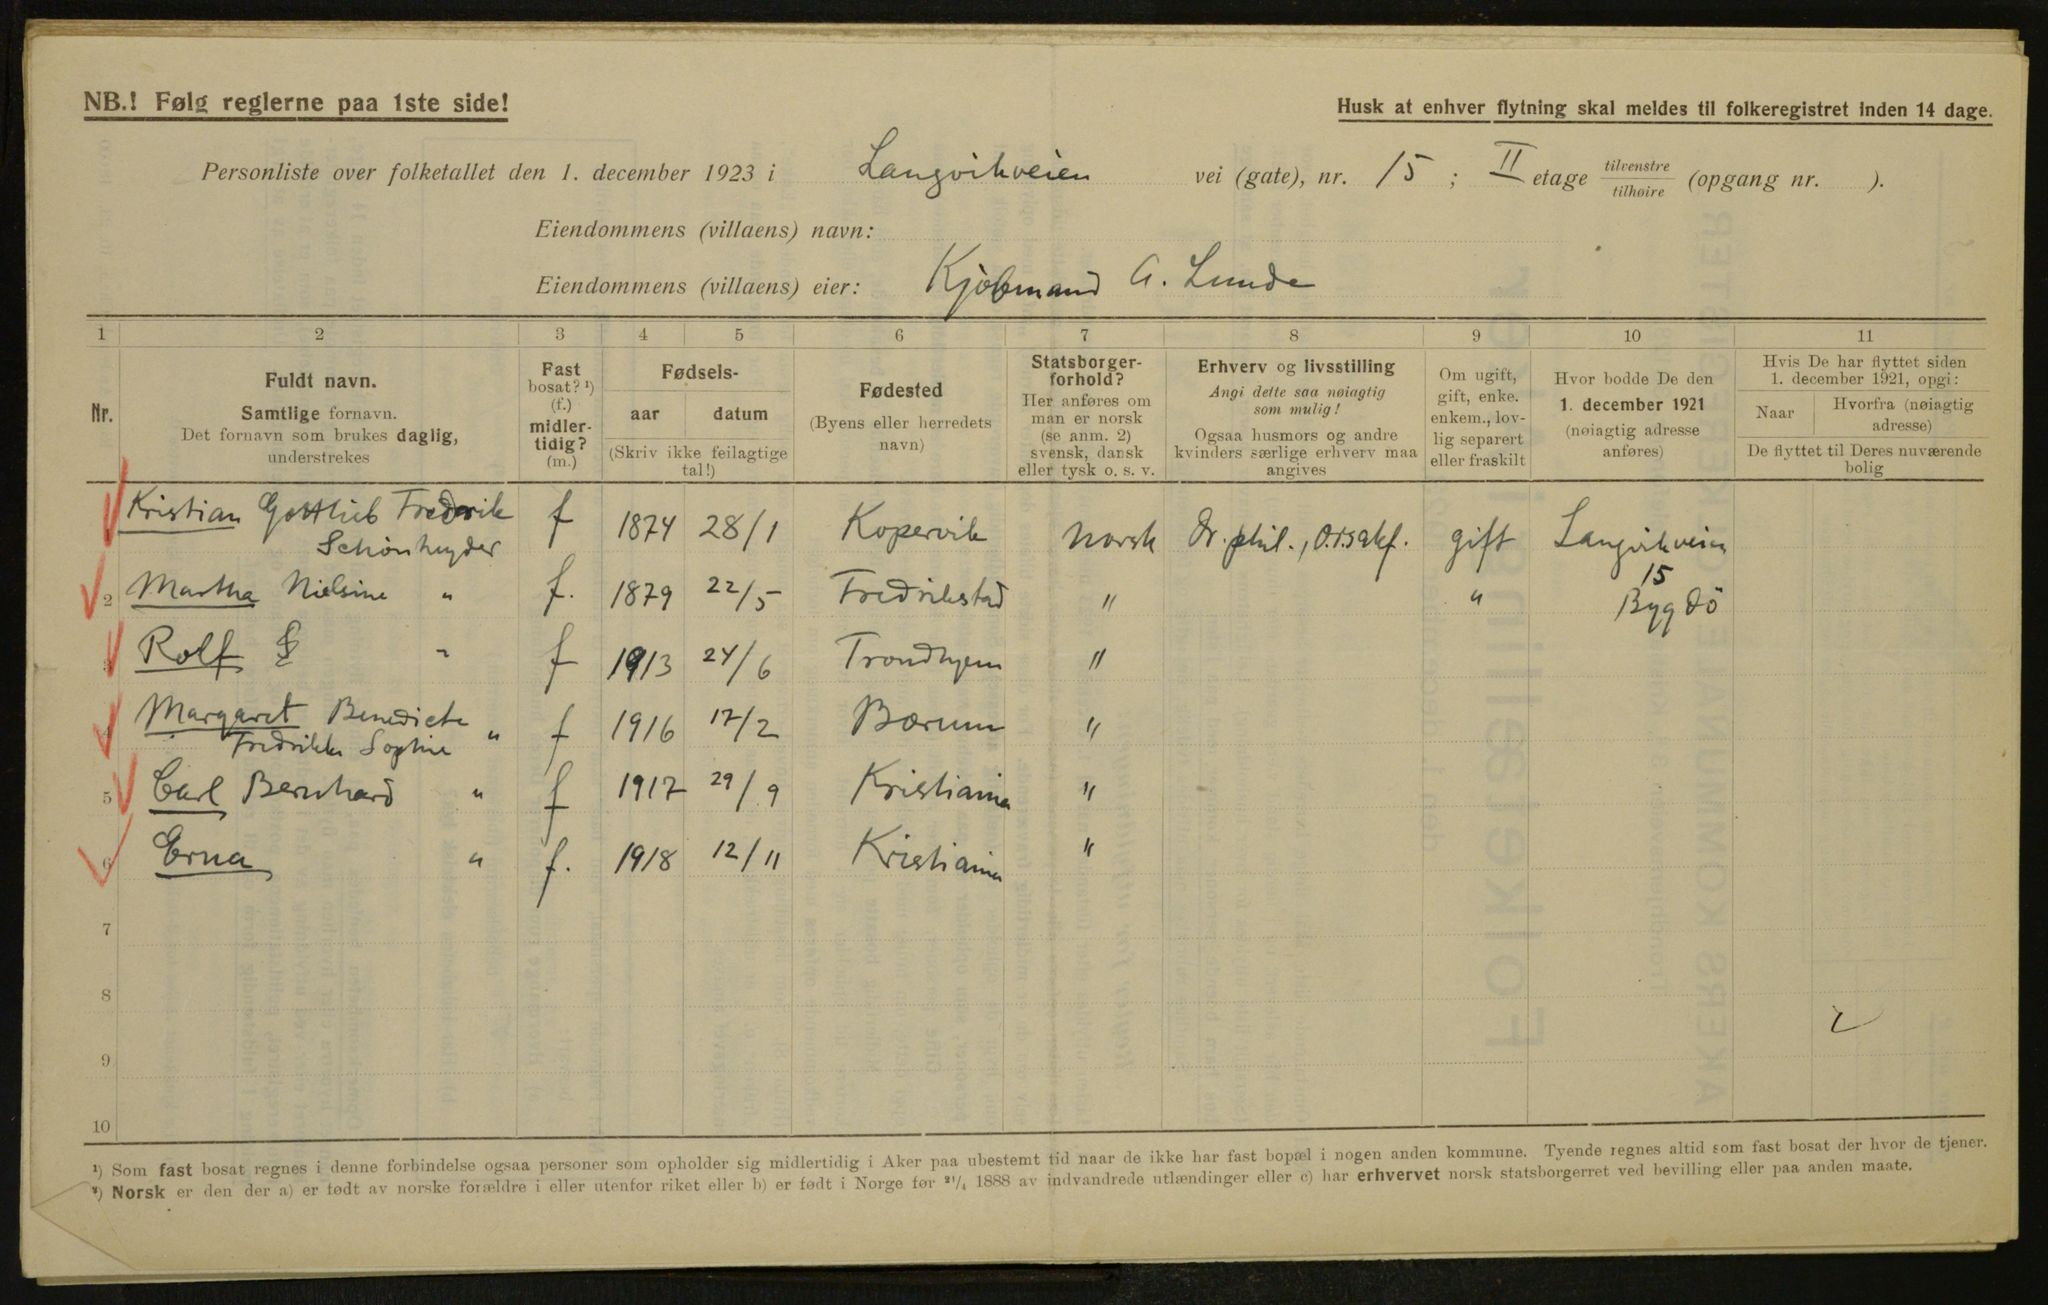 NB.! Følg reglerne paa 1ste side!
Husk at enhver flytning skal meldes til folkeregistret inden 14 dage.
Personliste over folketallet den 1. december 1923 i Langvikveien vei (gate), nr. 15 ; II etage tilvenstre / tilhøire (opgang nr. ).
Eiendommens (villaens) navn:
Eiendommens (villaens) eier: Kjøbmand A. Lunde
1 2 3 4 5 6 7 8 9 10 11
Nr.
Fuldt navn.
Samtlige fornavn.
Det fornavn som brukes daglig,
understrekes
Fast
bosat? ¹)
(f.)
midler-
tidig?
(m.)
Fødsels-
aar datum
(Skriv ikke feilagtige
tal!)
Fødested
(Byens eller herredets
navn)
Statsborger-
forhold?
Her anføres om
man er norsk
(se anm. 2)
svensk, dansk
eller tysk o. s. v.
Erhverv og livsstilling
Angi dette saa nøiagtig
som mulig!
Ogsaa husmors og andre
kvinders særlige erhverv maa
angives
Om ugift,
gift, enke.
enkem., lov-
lig separert
eller fraskilt
Hvor bodde De den
1. december 1921
(nøiagtig adresse
anføres)
Hvis De har flyttet siden
1. december 1921, opgi:
Naar
Hvorfra (nøiagtig
adresse)
De flyttet til Deres nuværende
bolig
Kristian Gottlieb Fredrik f 1874 28/1 Kopervik norsk Dr. phil., gift Langvikveien
Schønheyder 15
2 Martha Nielsine " f. 1879 22/5 Fredrikstad " " Bygdö
3 Rolf " f 1913 24/6 Trondhjem "
4 Margaret Benedicte " f 1916 17/2 Bærum "
Fredrikke Sophie
5 Carl Bernhard " f 1917 29/9 Kristiania "
6 Erna " f. 1918 12/11 Kristiania "
7
8
9
10
¹) Som fast bosat regnes i denne forbindelse ogsaa personer som opholder sig midlertidig i Aker paa ubestemt tid naar de ikke har fast bopæl i nogen anden kommune. Tyende regnes altid som fast bosat der hvor de tjener.
²) Norsk er den der a) er født av norske forældre i eller utenfor riket eller b) er født i Norge før ²¹/₄ 1888 av indvandrede utlændinger eller c) har erhvervet norsk statsborgerret ved bevilling eller paa anden maate.